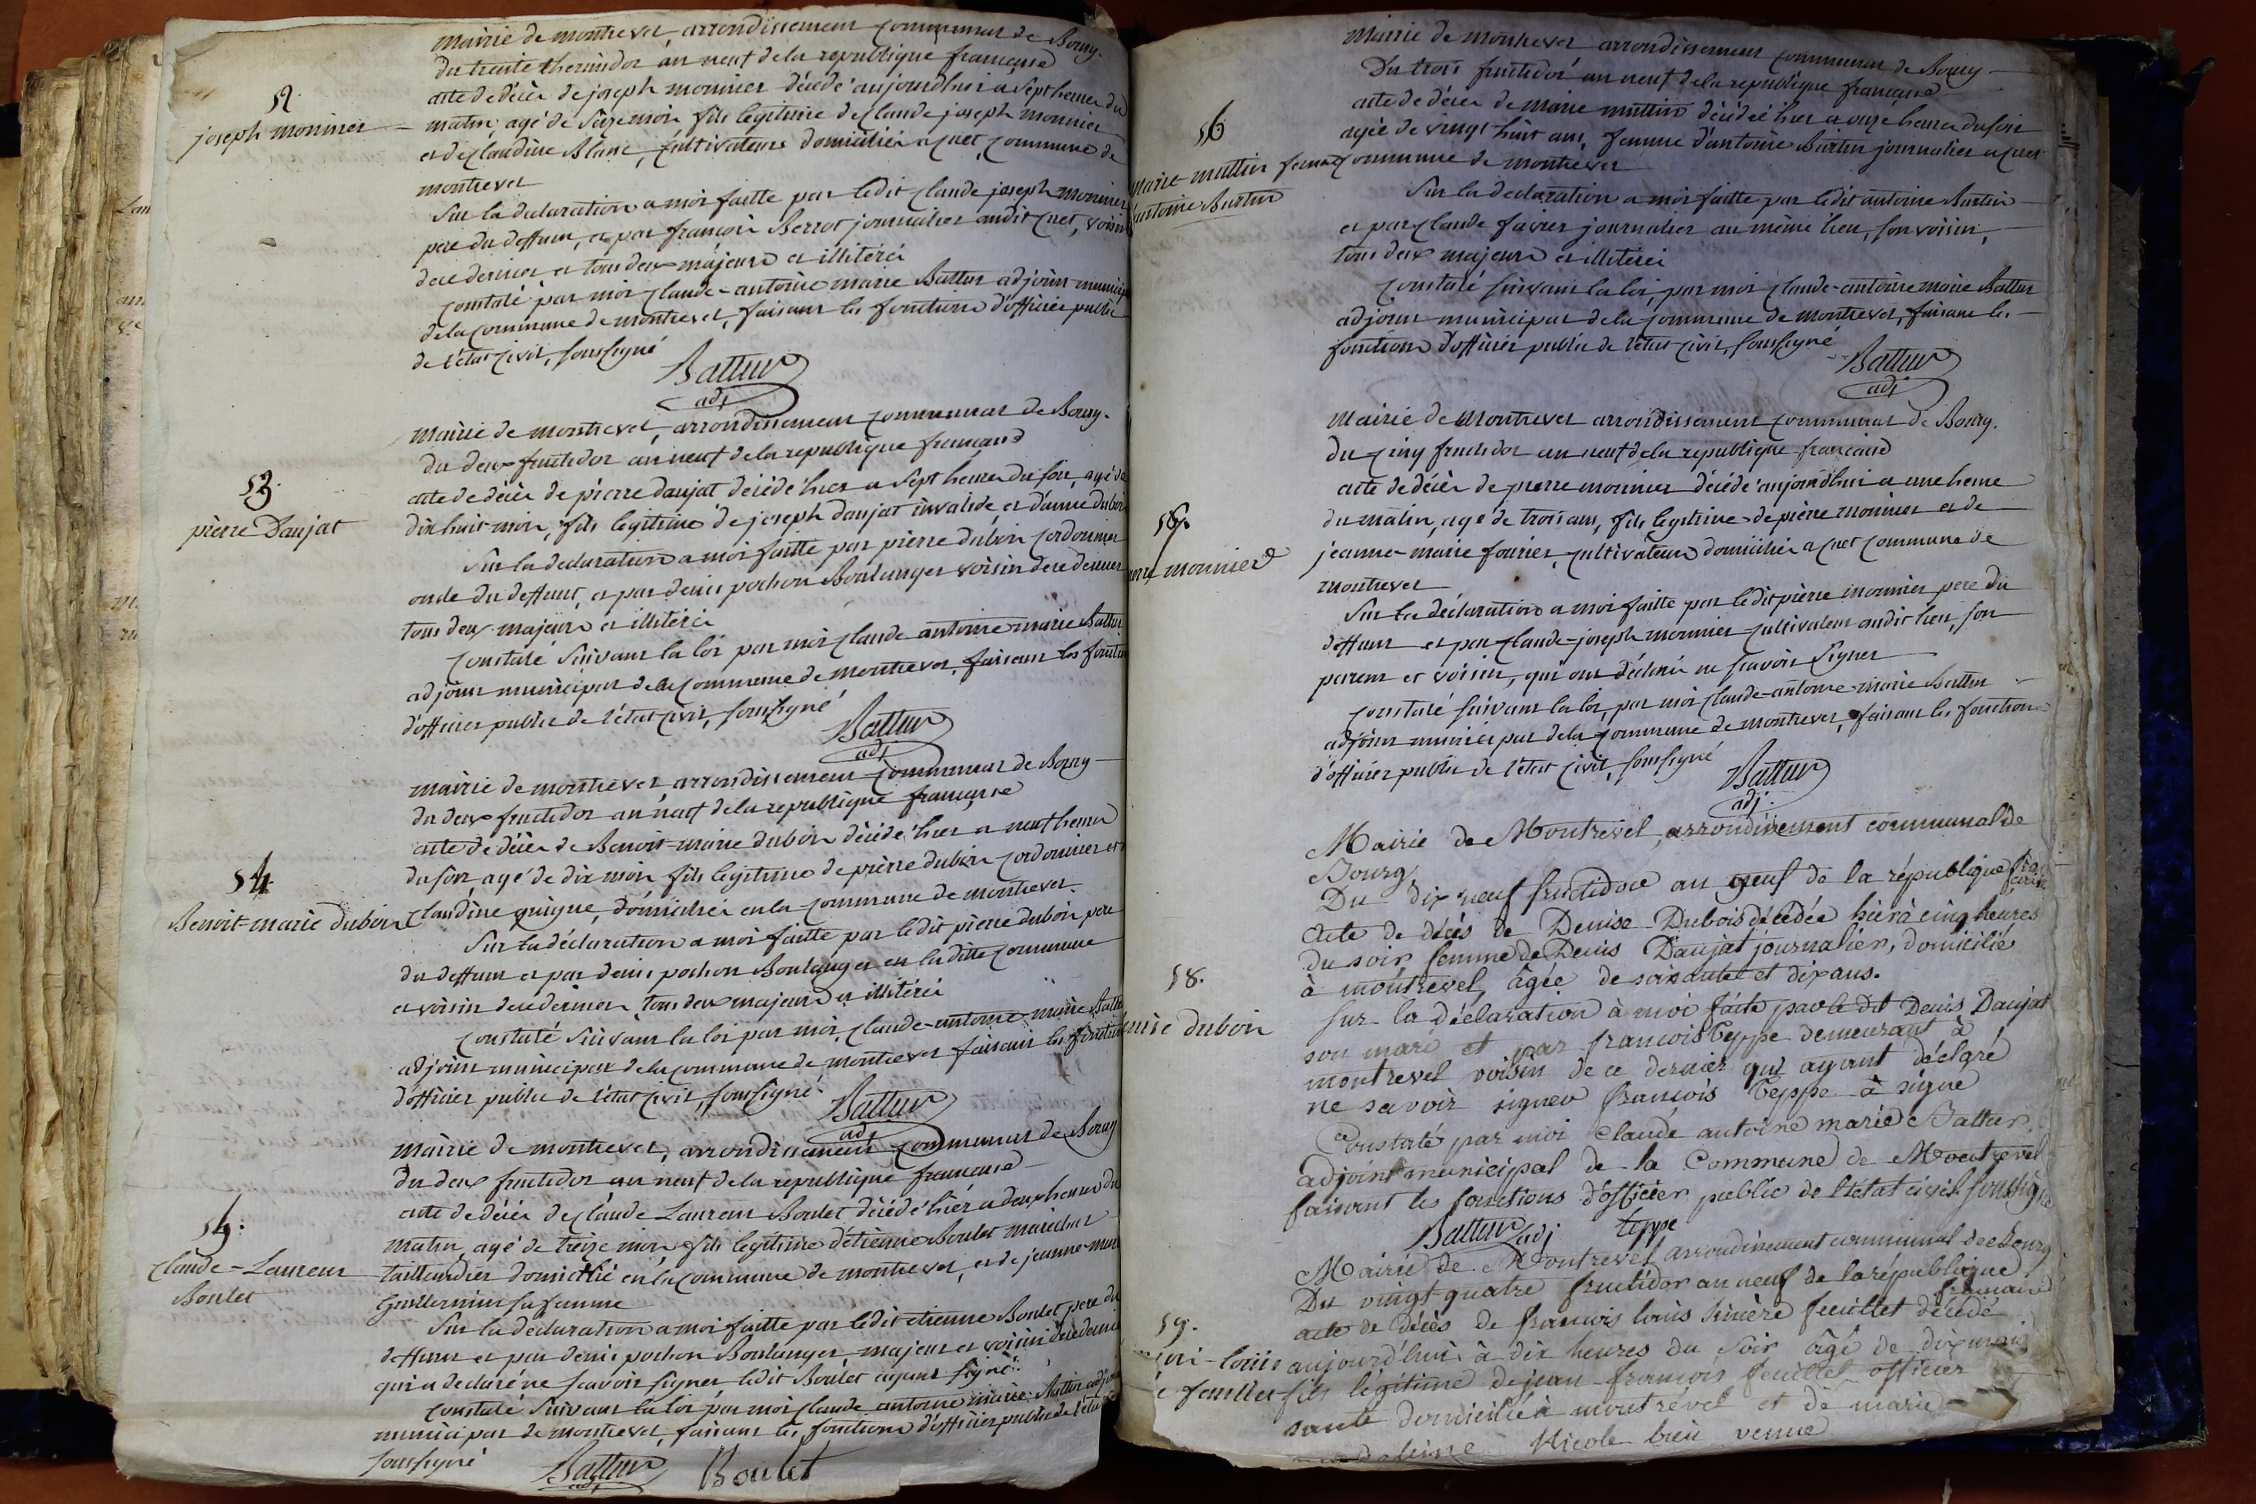 mairie de montrevel, arrondissement communal de Bourg.
du trente thermidor an neuf de la republique française
52.
joseph monnier
acte de décès de joseph monnier décédé aujourdhui a sept heures du
matin, agé de seize mois fils legitime de claude joseph monnier
et de claudine Blanc, cultivateurs domiciliés a cuet, commune de
montrevel
Sur la declaration a moi faitte par ledit claude joseph monnier
pere du deffunt, et par françois Berrot journalier audit cuet, voisin
de ce dernier et tous deux majeurs et illitérés
constaté par moi claude-antoine marie Battur adjoint municip
de la commune de montrevel, faisant les fonctions d'officier public
de l'état civil, soussigné
Battur
adj
mairie de montrevel, arrondissement communal de Bourg.
du deux fructidor an neuf de la republique française
53.
pierre Daujat
acte de décès de pierre daujat décédé hier a sept heures du soir, agé de
dix huit mois, fils legitime de joseph daujat invalide, et d'anne dubois
Sur la declaration a moi faitte par pierre dubois cordonnier
oncle du deffunt, et par denis pochon Boulanger voisin de ce dernier
tous deux majeurs et illitérés
constaté suivant la loi par moi claude antoine marie Battur
adjoint municipal de la commune de montrevel, faisant les fonction
d'officier public de l'état civil, soussigné
Battur
adj
mairie de montrevel, arrondissement communal de Bourg
du deux fructidor an neuf de la republique française
54
Benoit-marie dubois
acte de décès de Benoit-marie dubois décédé hier a neuf heures
du soir, agé de dix mois fils legitime de pierre dubois cordonnier et
claudine guigue, domiciliés en la commune de montrevel.
Sur la déclaration a moi faitte par ledit pierre dubois pere
du deffunt et par denis pochon Boulanger en laditte commune
et voisin de ce dernier, tous deux majeurs et illitérés
constaté suivant la loi par moi, claude-antoine-marie Battur
adjoint municipal de la commune de montrevel faisant les fonction
d'officier public de l'état civil, soussigné.
Battur
adj
mairie de montrevel, arrondissement communal de Bourg
du deux fructidor an neuf de la republique française
55.
Claude-Laurent
Boulet
acte de décès de claude Laurent Boulet décédé hier a deux heures du
matin, agé de treize mois fils legitime d'étienne Boulet marechal
taillandier domicilié en la commune de montrevel, et de jeanne-marie
Guillermin sa femme
Sur la declaration a moi faitte par ledit étienne Boulet pere du
deffunt et par denis pochon Boulanger majeur et voisin de ce dernier
qui a declaré ne scavoir signer ledit Boulet ayant signé.
constaté suivant la loi par moi claude antoine marie Battur adjoint
municipal de montrevel, faisant les fonctions d'officier public de l'état
soussigné
Battur
adj
Boulet
mairie de montrevel arrondissement communal de Bourg
Du trois fructidor an neuf de la republique française
56.
marie muttin femme
d'antoine Burtin
acte de décès de marie muttin décédée hier a onze heures du soir
agée de vingt huit ans, femme d'antoine Burtin journalier a cuet
commune de montrevel
Sur la declaration a moi faitte par ledit antoine Burtin
et par claude favier journalier au même lieu, son voisin,
tous deux majeurs et illitérés
constaté suivant la loi, par moi claude-antoine marie Battur
adjoint municipal de la commune de montrevel, faisant les
fonctions d'officier public de l'état civil, soussigné
Battur
adj
mairie de Montrevel arrondissement communal de Bourg.
du cinq fructidor an neuf de la republique française
57.
monnier
acte de décès de pierre monnier décédé aujourdhui a une heure
du matin, agé de trois ans, fils legitime de pierre monnier et de
jeanne-marie fournier, cultivateurs domiciliés a cuet commune de
montrevel
Sur la déclaration a moi faitte par ledit pierre monnier pere du
deffunt et par claude-joseph monnier cultivateur audit lieu, son
parent et voisin, qui ont déclaré ne scavoir signer
constaté suivant la loi, par moi claude-antoine-marie Battur
adjoint municipal de la commune de montrevel, faisant les fonctions
d'officier public de l'état civil, soussigné
Battur
adj.
Mairie de Montrevel, arrondissement communal de
Bourg
Du dix neuf fructidor an neuf de la république fran
çaise
58.
nise dubois
Acte de décès de Denise Dubois décédée hier à cinq heures
du soir femme de Denis Daujat journalier, domicilié
à montrevel, âgée de soixante et dix ans.
Sur la déclaration à moi faite par le dit Denis Daujat
son mari et par françois Teppe demeurant à
montrevel voisin de ce dernier qui ayant déclaré
ne savoir signer françois Teppe à signé
Constaté par moi Claude antoine marie Battur,
adjoint municipal de la Commune de Montrevel
faisant les fonctions d'officier public de l'Etat civil soussigné
Battur adj teppe
Mairie de Montrevel, arrondissement communal de Bourg
Du vingt quatre fructidor an neuf de la république
française
59.
çois-louis
feuillet
acte de décès de françois louis sincère feuillet décédé
aujourd'hui à dix heures du soir âgé de dix mois
fils légitime de jean françois feuillet officier
santé domicilié à montrével et de marie
Nicole bien venue